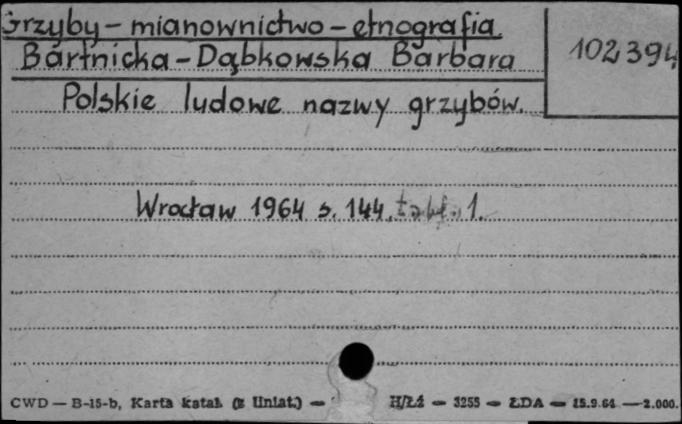 Grzyby - mianownictwo - etnografia
Bartnicka-Dąbkowska Barbara
102394
Polskie ludowe nazwy grzybów.
Wrocław 1964 s. 144, tabl. 1.
CWD — B-15-b, Karta katal. (z Uniat.) — H/Łź — 3255 — ŁDA — 15.9.64 — 2.000.